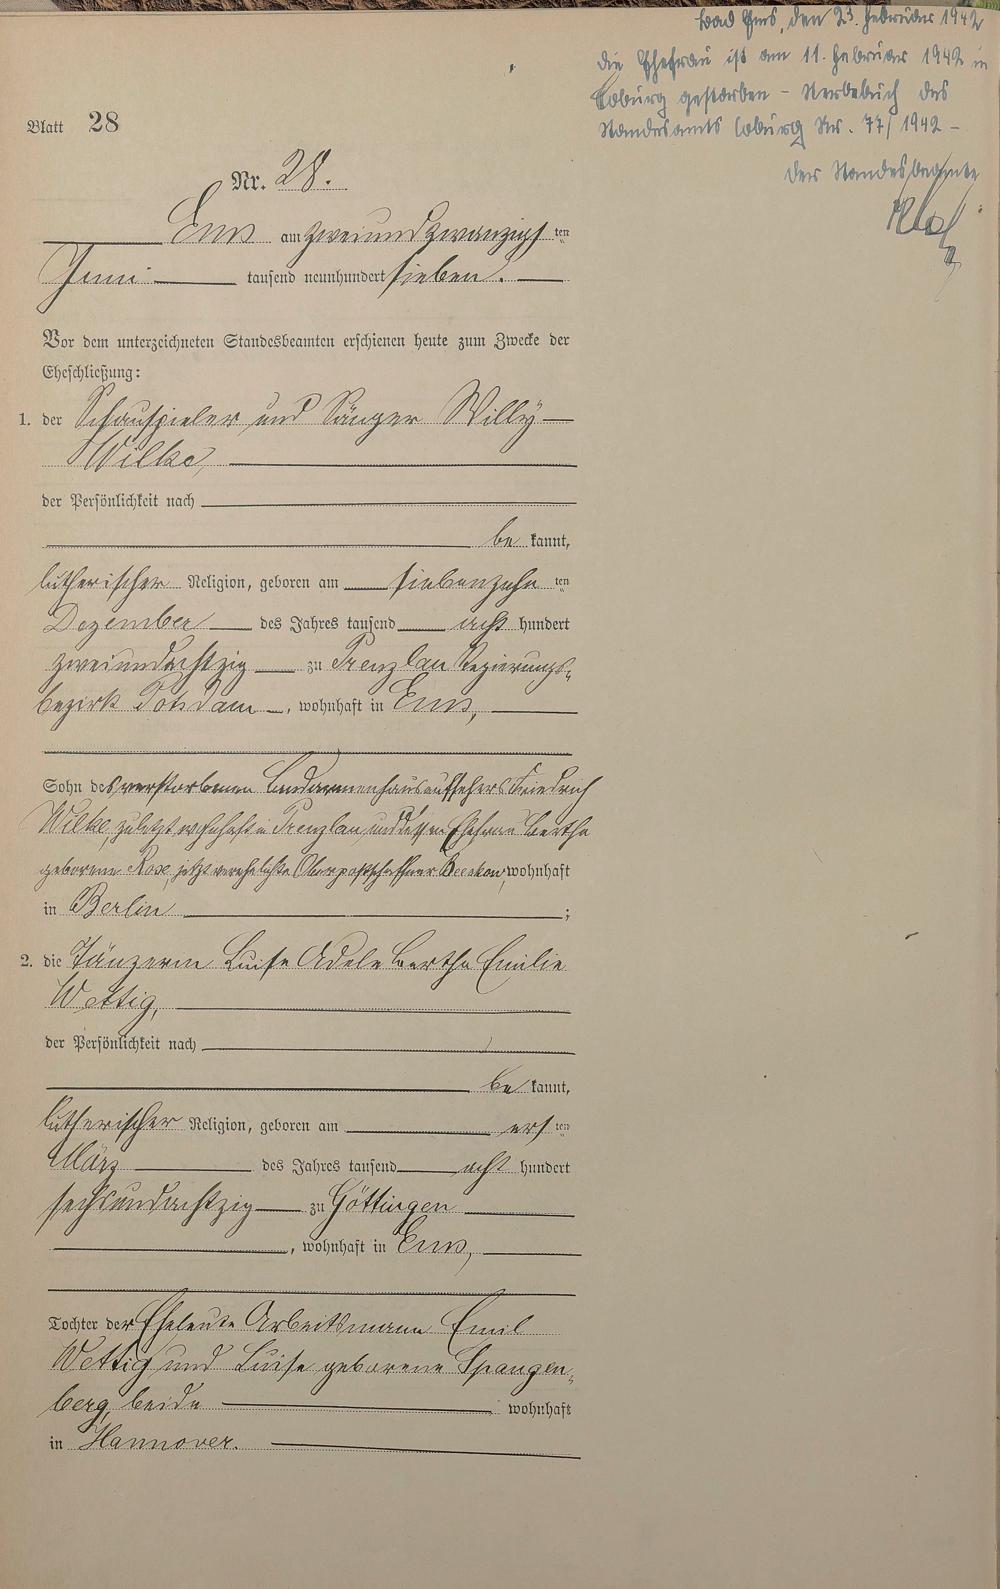 Bad Ems, den 23. Februar 1942
die Ehefrau ist am 11. Februar 1942 in
Coburg gestorben - Sterbebuch des
Standesamts Coburg Nr. 77/1942 -
Der Standesbeamte
Blatt 28
Nr. 28.
Ems am zweiundzwanzigsten
Juni tausend neunhundert sieben.
Vor dem unterzeichneten Standesbeamten erschienen heute zum Zwecke der
Eheschließung:
1. der Schauspieler und Sänger Willy
Wilke,
der Persönlichkeit nach
bekannt,
lutherischer Religion, geboren am siebenzehnten
Dezember des Jahres tausend acht hundert
zweiundachtzig zu Prenzlau Regierungs-
bezirk Potsdam, wohnhaft in Ems,
Sohn des verstorbenen Landarmenhausaufsehers Friedrich
Wilke, zuletzt wohnhaft in Prenzlau, und dessen Ehefrau Bertha
geborene Rose, jetzt verehelichte Oberpostschaffner wohnhaft
in Berlin ;
2. die Tänzerin Luise Adele Bertha Emilie
Wettig,
der Persönlichkeit nach
bekannt,
lutherischer Religion, geboren am ersten
März des Jahres tausend acht hundert
sechsundachtzig zu Göttingen
, wohnhaft in Ems,
Tochter der Eheleute Arbeitsmann Emil
Wettig und Luise geborene Spangen-
berg, beide wohnhaft
in Hannover.